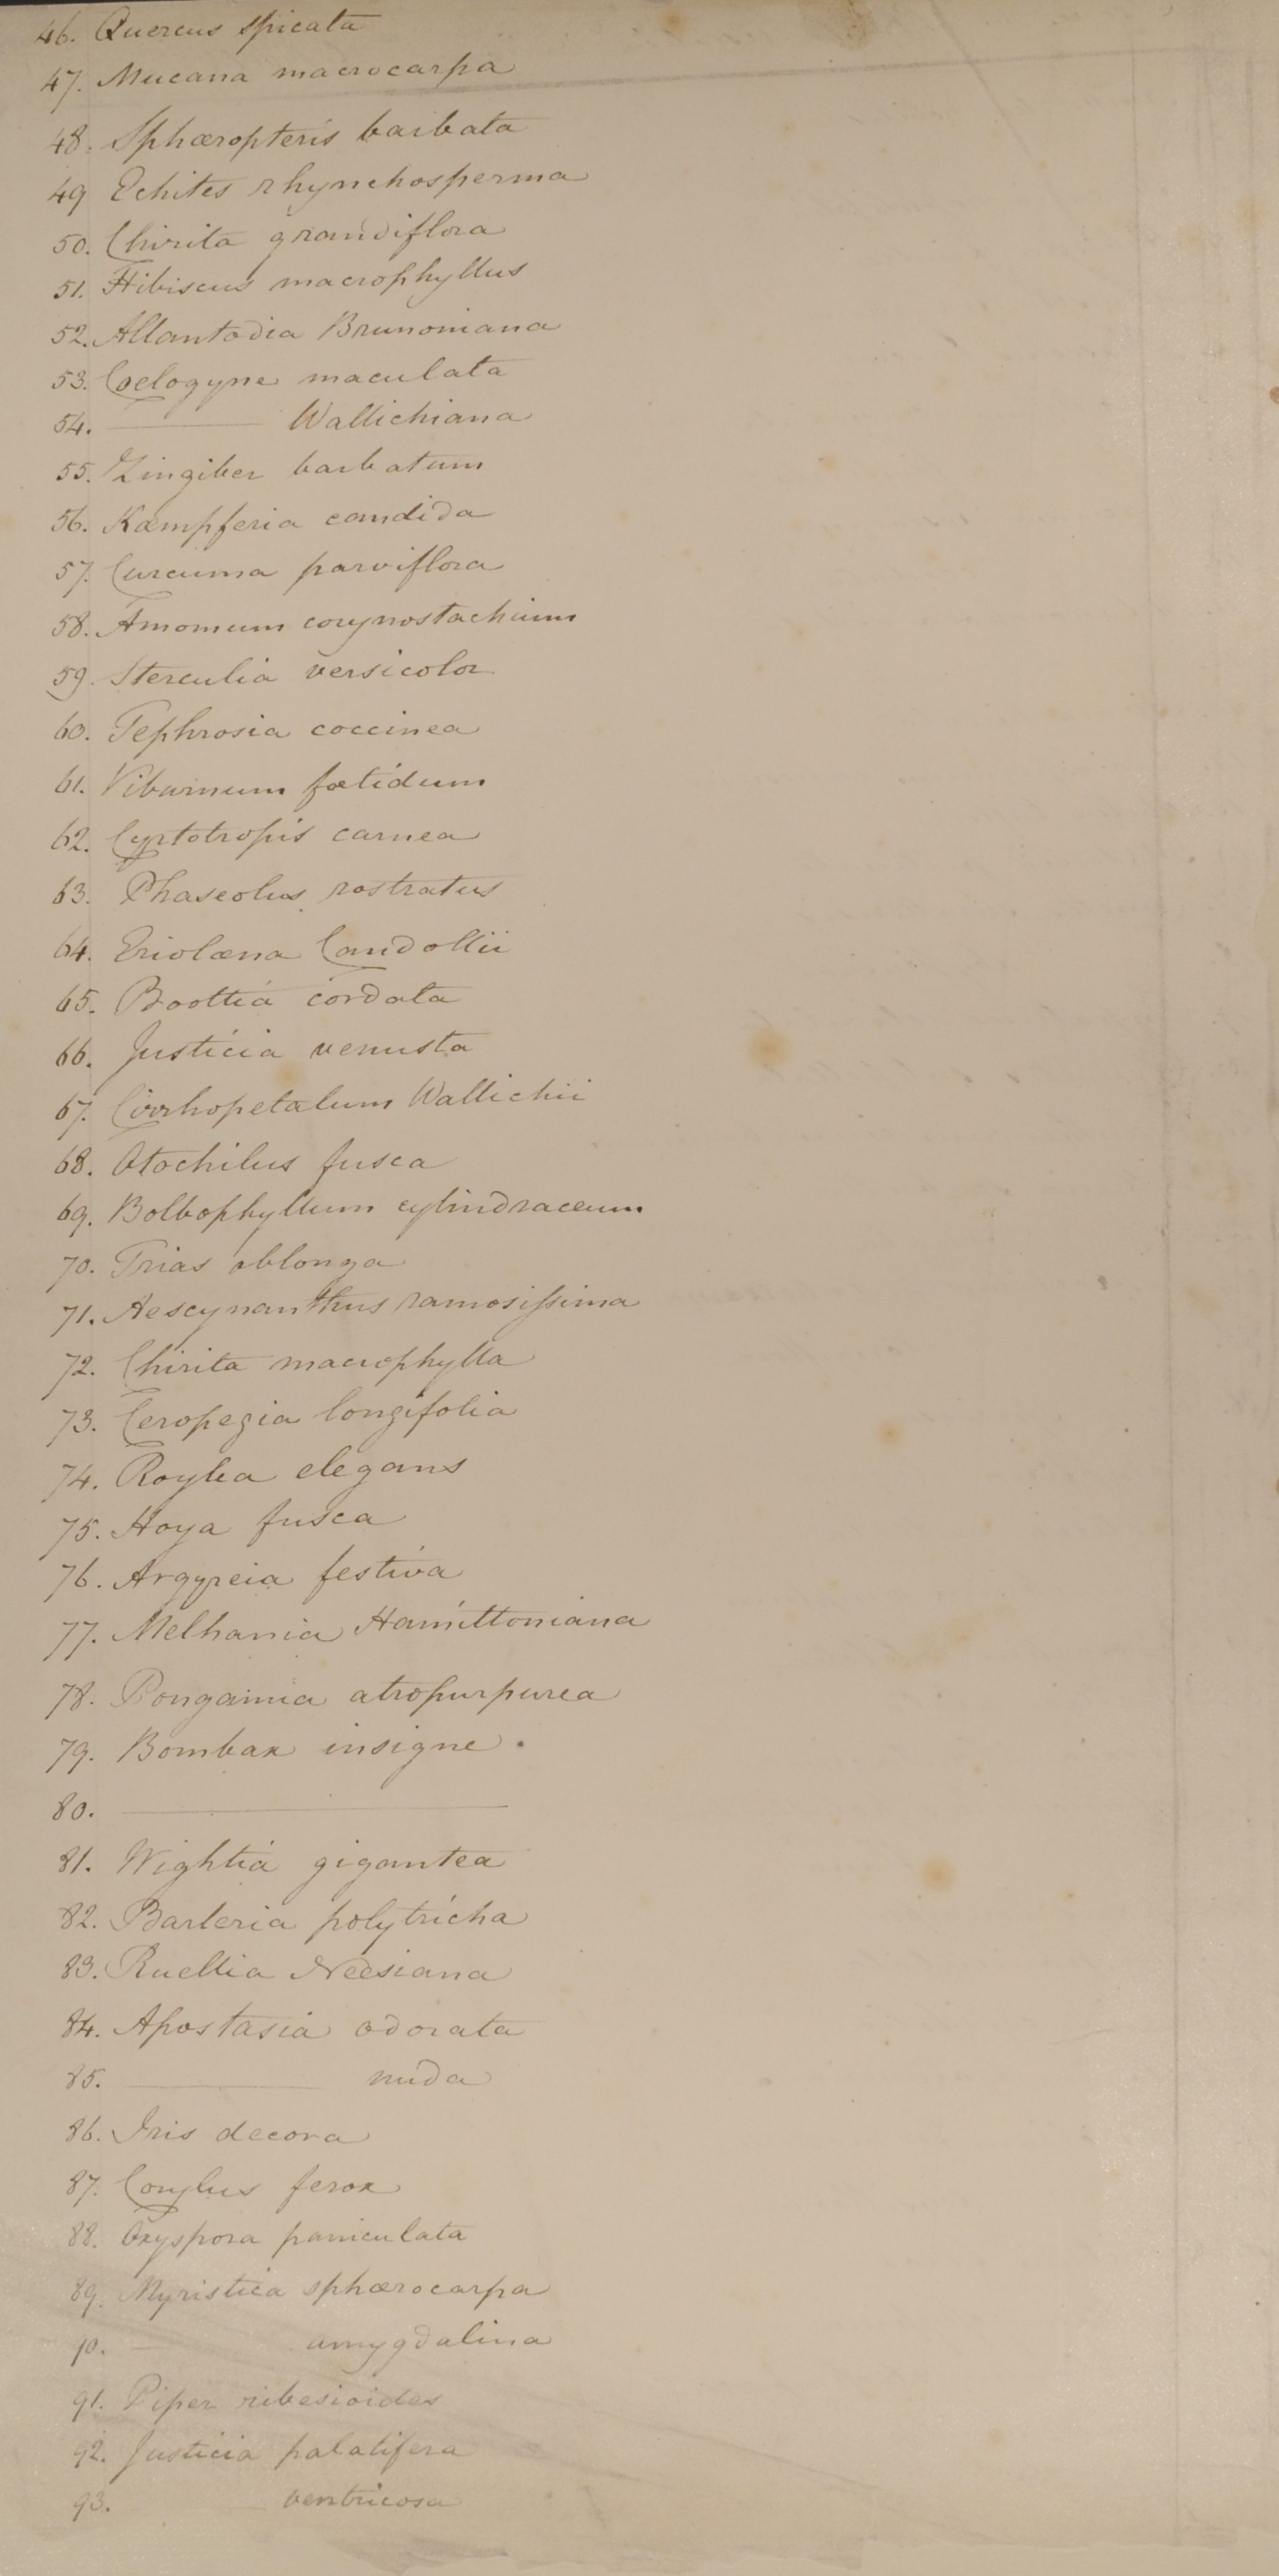 46. Quercus spicata
47. Mucana macrocarpa
48. Sphæropteris barbata
49 Echites rhynchosperma
50. Chirita grandiflora
51. Hibiscus macrophyllus
52. Allantodia Brunoniana
53. Coelogyne maculata
54. ——— Wallichiana
55. Zingiber barbatum
56. Kæmpferia candida
57. Curcuma parviflora
58. Amomum corynostachium
59. Sterculia versicolor
60. Tephrosia coccinea
61. Viburnum fœtidum
62. Cyrtotropis carnea
63. Phaseolus rostratus
64. Eriolæna Candollii
65. Boottia cordata
66. Justicia venusta
67. Cirrhopetalum Wallichii
68. Otochilus fusca
69. Bolbophyllum cylindraceum
70. Trias oblonga
71. Aescynanthus ramosissima
72. Chirita macrophylla
73. Ceropegia longifolia
74. Roylea elegans
75. Hoya fusca
76. Argyreia festiva
77. Melhania Hamiltoniana
78. Pongamia atropurpurea
79. Bombax insigne.
80. ———
81. Wightia gigantea
82. Barleria polytricha
83. Ruellia Neesiana
84. Apostasia odorata
85. ——— nuda
86. Iris decora
87. Corylus ferox
88. Oxyspora paniculata
89. Myristica sphærocarpa
90. — amygdalina
91. Piper ribesioides
92. Justicia palatifera
93. ——— ventricosa